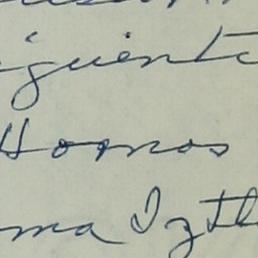 iguiente
Hornos
ma Izth